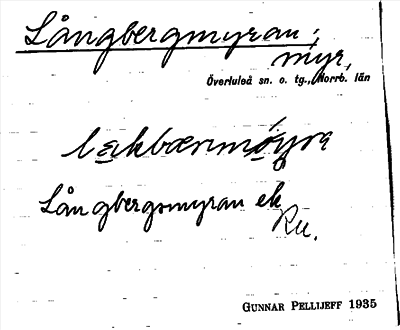 Långbergmyran;
myr,
Överluleå sn. o. tg., Norrb. län
Långbergsmyran ek
Ru.
GUNNAR PELLIJEFF 1935